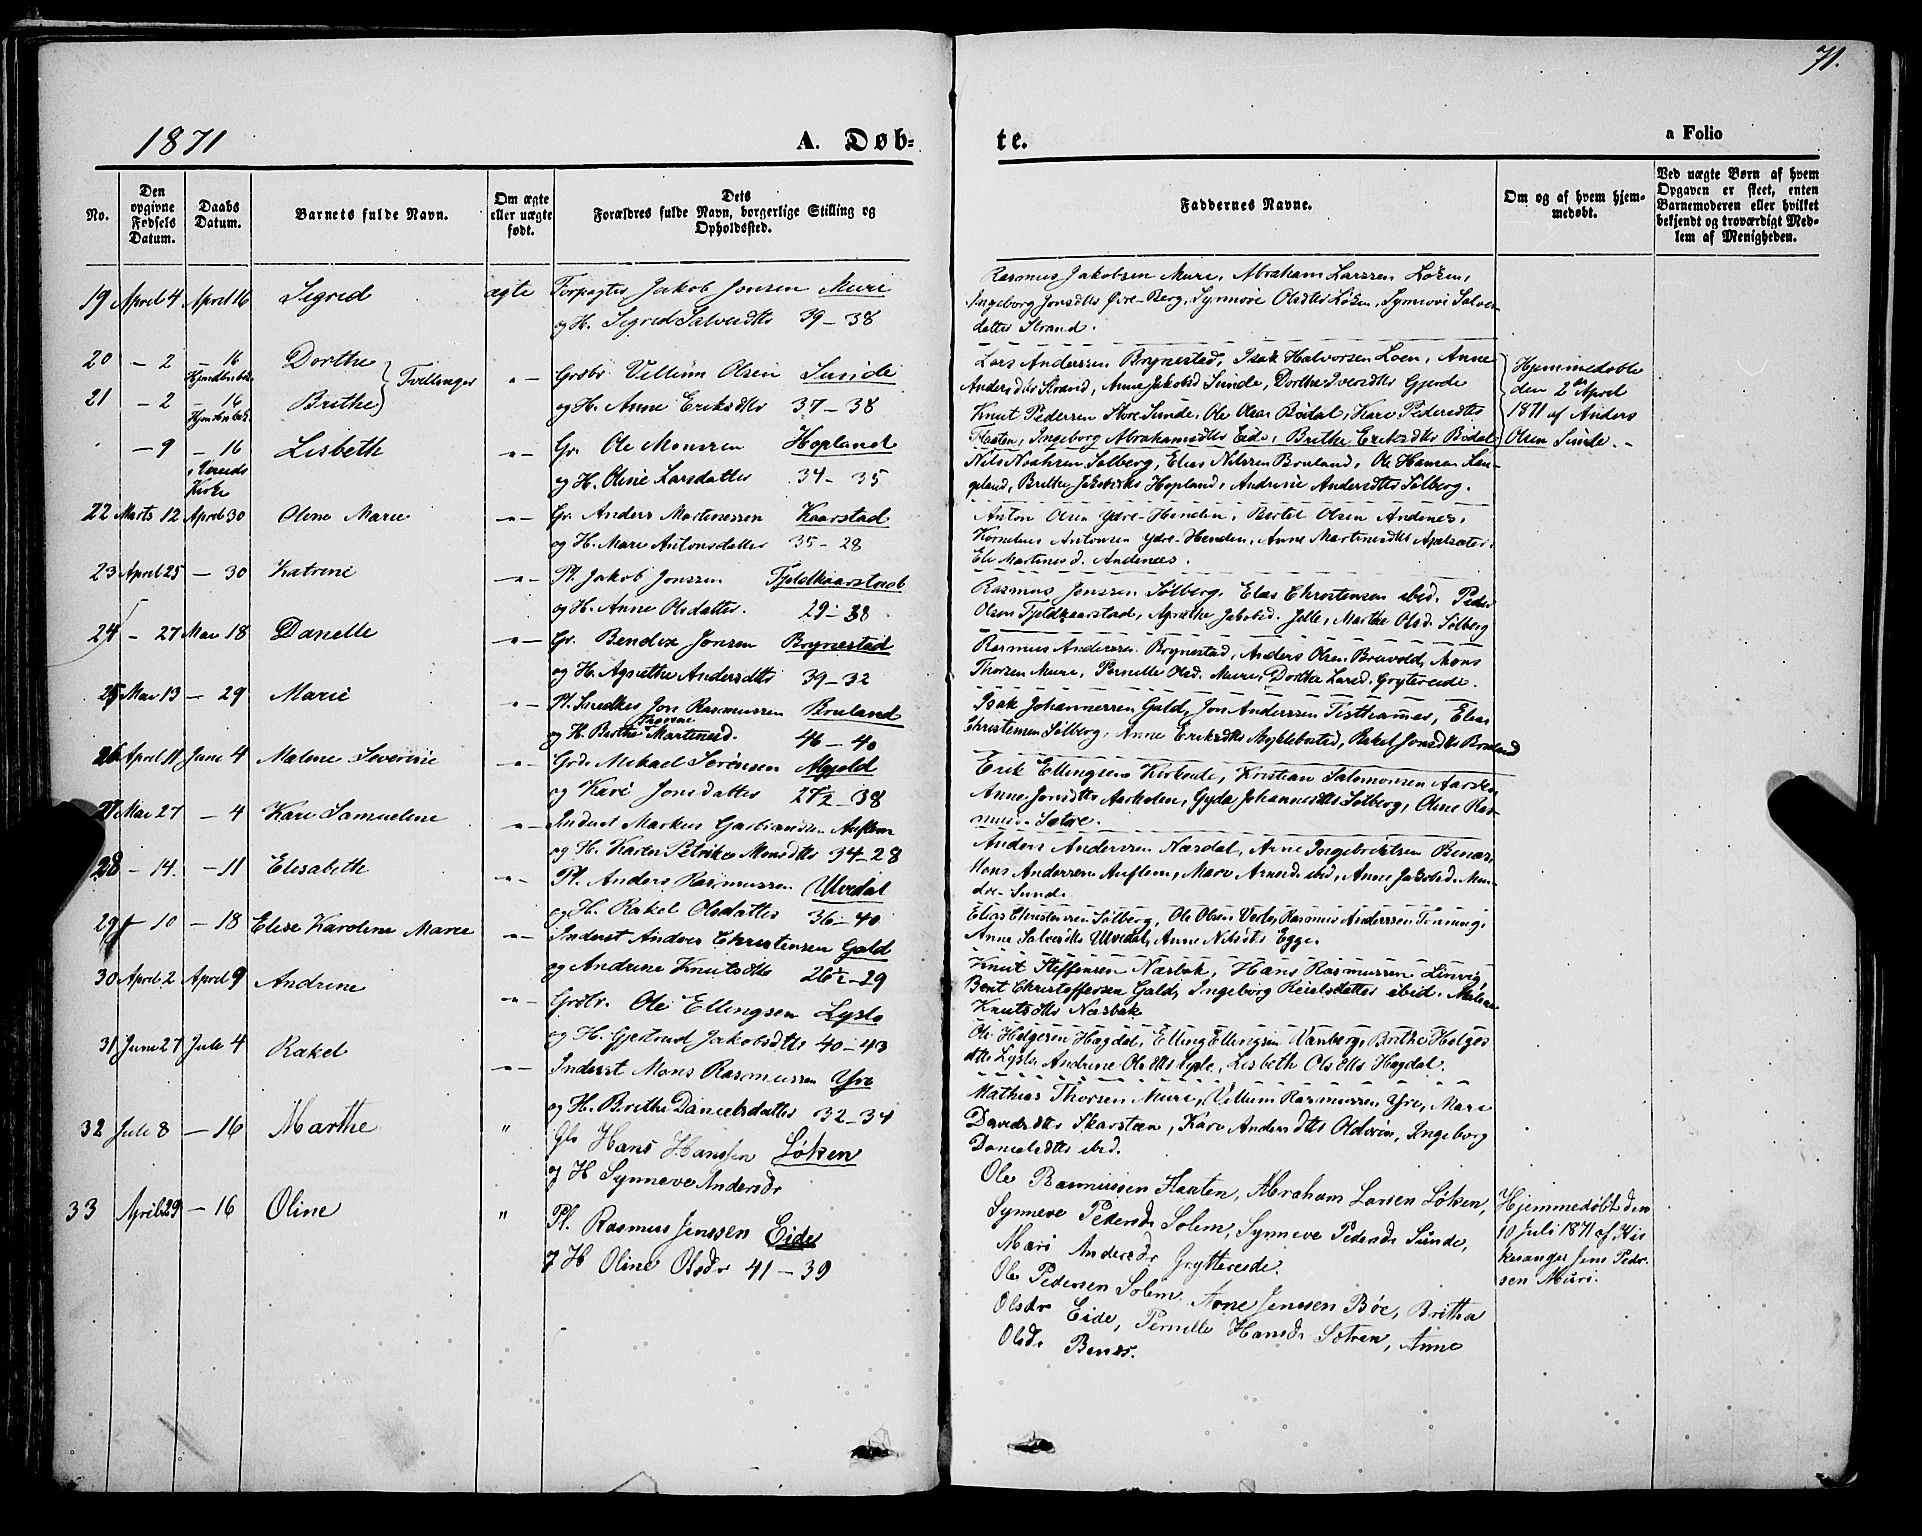 71.
1871
A. Døb-
te.
a Folio
No.
Den opgivne Fødsels Datum.
Daabs Datum.
Barnets fulde Navn.
Om ægte eller uægte født.
Dets Forældres fulde Navn, borgerlige Stilling og Opholdssted.
Faddernes Navne.
Om og af hvem hjemmedøbt.
Ved uægte Børn af hvem Opgaven er skeet, enten Barnemoderen eller hvilket bekjendt og troværdigt Medlem af Menigheden.
19 April 4 April 16 Sigrid ægte Forpagter Jakob Jonsen Muri
og H. Sigrid Salvesdtr 39 – 38
Rasmus Jakobsen Muri, Abraham Larssen Løken,
Ingeborg Jonsdtr Øvre-Berg, Synnøve Olsdtr Løken, Synnøve Salve-
datter Strand.
20 – 2 – 16 Dorthe
21 – 2 – 16 Brithe } Tvillinger
–"– Grdbr Villum Olsen Sunde
og H. Anne Eriksdtr 37 – 38
Lars Anderssen Brynestad, Isak Halvorsen Loen, Anne
Andersdtr Strand, Anne Jakobsd Sunde, Dorthe Iversdtr Gjerde
Knut Pederssen Store Sunde, Ole Olsen Bødal, Kari Pedersdtr
Flaaten, Ingeborg Abrahamsdtr Eide, Brithe Eriksdtr Bødal
Hjemmedøbte
den 2den April
1871 af Anders
Olsen Sunde. –
– 9 – 16 Lisbeth –"– Gr. Ole Monssen Hopland
Kirke
og H. Oline Larsdatter 34 – 35
Nils Noahsen Solberg, Elias Nilssen Bruland, Ole Hansen Lan-
geland, Brithe Jakobsdtr Hopland, Andrine Andersdtr Solberg.
22 Marts 12 April 30 Oline Marie –"– Gr. Anders Martinussen Kaarstad
og H. Mari Antonsdatter 35 – 28
Anton Olsen Ydre-Henden, Bertel Olsen Andenes,
Kornelius Antonsen Ydre-Henden, Anne Martinusdtr Apalsæter,
Eli Martinusd. Andenes.
23 April 25 – 30 Katrine –"– Pl. Jakob Jonssen Fjeldkaarstad
og H. Anne Olsdatter. 29 – 38
Rasmus Jonssen Solberg, Elias Christensen ibid. Peder
Olsen Fjeldkaarstad, Agnethe Jakobsd. Jelle, Marthe Olsd. Solberg
24 – 27 Mai 18 Danelle –"– Gr. Bendix Jonsen Brynestad
og H. Agnethe Andersdtr 39 – 32
Rasmus Anderssen Brynestad, Anders Olsen Bruvold, Mons
Thorsen Muri, Pernille Olsd. Muri, Dorthe Larsd. Grytereide.
25 Mai 13 – 29 Marie –"– Pl. Jon Rasmussen Bruland
og H. Berthe Martinusd. 46 – 40
Isak Johannessen Gald, Jon Anderssen Tisthamer, Elias
Christensen Solberg, Anne Eriksdtr Myklebostad, Rakel Jonsdtr Bruland
26 April 11 Juni 4 Malene Severine –"– Grd. Mikael Sørensen Mjeld
og Kari Jonsdatter 27½ – 38
Erik Ellingsen Kirkeide, Kristian Salomonsen Aarsken
Anne Jonsdtr Aarholen, Gyda Johannesdtr Solberg, Oline Ras-
musd. Sætre.
27 Mai 27 – 4 Kari Samueline –"– Inderst Markus Gabrielsen Auflem
og H. Karen Petrike Monsdtr 34 – 28
Anders Anderssen Næsdal, Arne Ingebrigtsen Benæs,
Mons Anderssen Auflem, Mari Arnesd. ibid, Anne Jakobsd. Ne-
dre-Sunde
28 – 14. – 11 Elisabeth –"– Pl. Anders Rasmussen Ulvedal
og H. Rakel Olsdatter 36 – 40
Elias Christensen Solberg, Ole Olsen, Rasmus Anderssen
Anne Salvesdtr Ulvedal, Anne Nilsdtr Egge.
29 – 10 – 18 Elise Karoline Marie –"– Inderst Andreas Christensen Gald
og Andrine Knutsdtr 26½ – 29
Knut Steffensen Næsbak, Hans Rasmussen Linvig,
Bent Christoffersen Gald, Ingeborg Reielsdatter ibid. Malene
Knutsdtr Næsbak
30 April 2 April 9 Andrine –"– Grdbr. Ole Ellingsen Lyslo
og H. Gjertrud Jakobsdtr 40 – 43
Ole Helgesen Hogdal, Elling Ellingsen Vanberg, Brithe Helges-
dtr Lyslo, Andrine Olsdtr Lyslo, Lisbeth Olsdtr Hogdal.
31 Juni 27 Juli 4 Rakel –"– Inderst Mons Rasmussen Yre
og H. Brithe Danielsdatter 32 – 34
Mathias Thorsen Muri, Villum Rasmussen Yre, Mari
Davidsdtr Skarsteen, Kari Andersdtr Oldøren, Ingeborg
Danielsdtr ibid.
32 Juli 8 – 16 Marthe " Hans Hanssen Løken
og H Synneve Andersdr
Ole Rasmussen Flaaten, Abraham Larsen Løken,
Synneve Pedersdr Solem, Synneve Pedersdr Sunde,
Mari Andersdr Gryttereide.
Hjemmedøbt den
10 Juli 1871 af Kir
kesanger Jens Peder-
sen Muri.
33 April 29 – 16 Oline " Pl. Rasmus Jenssen Eide
og H Oline Olsdr 41 – 39
Ole Pedersen Solem, Arne Jenssen Bøe, Britha
Olsdr Eide, Pernille Hansdr Sætren, Anne
Olsdr Benæs.